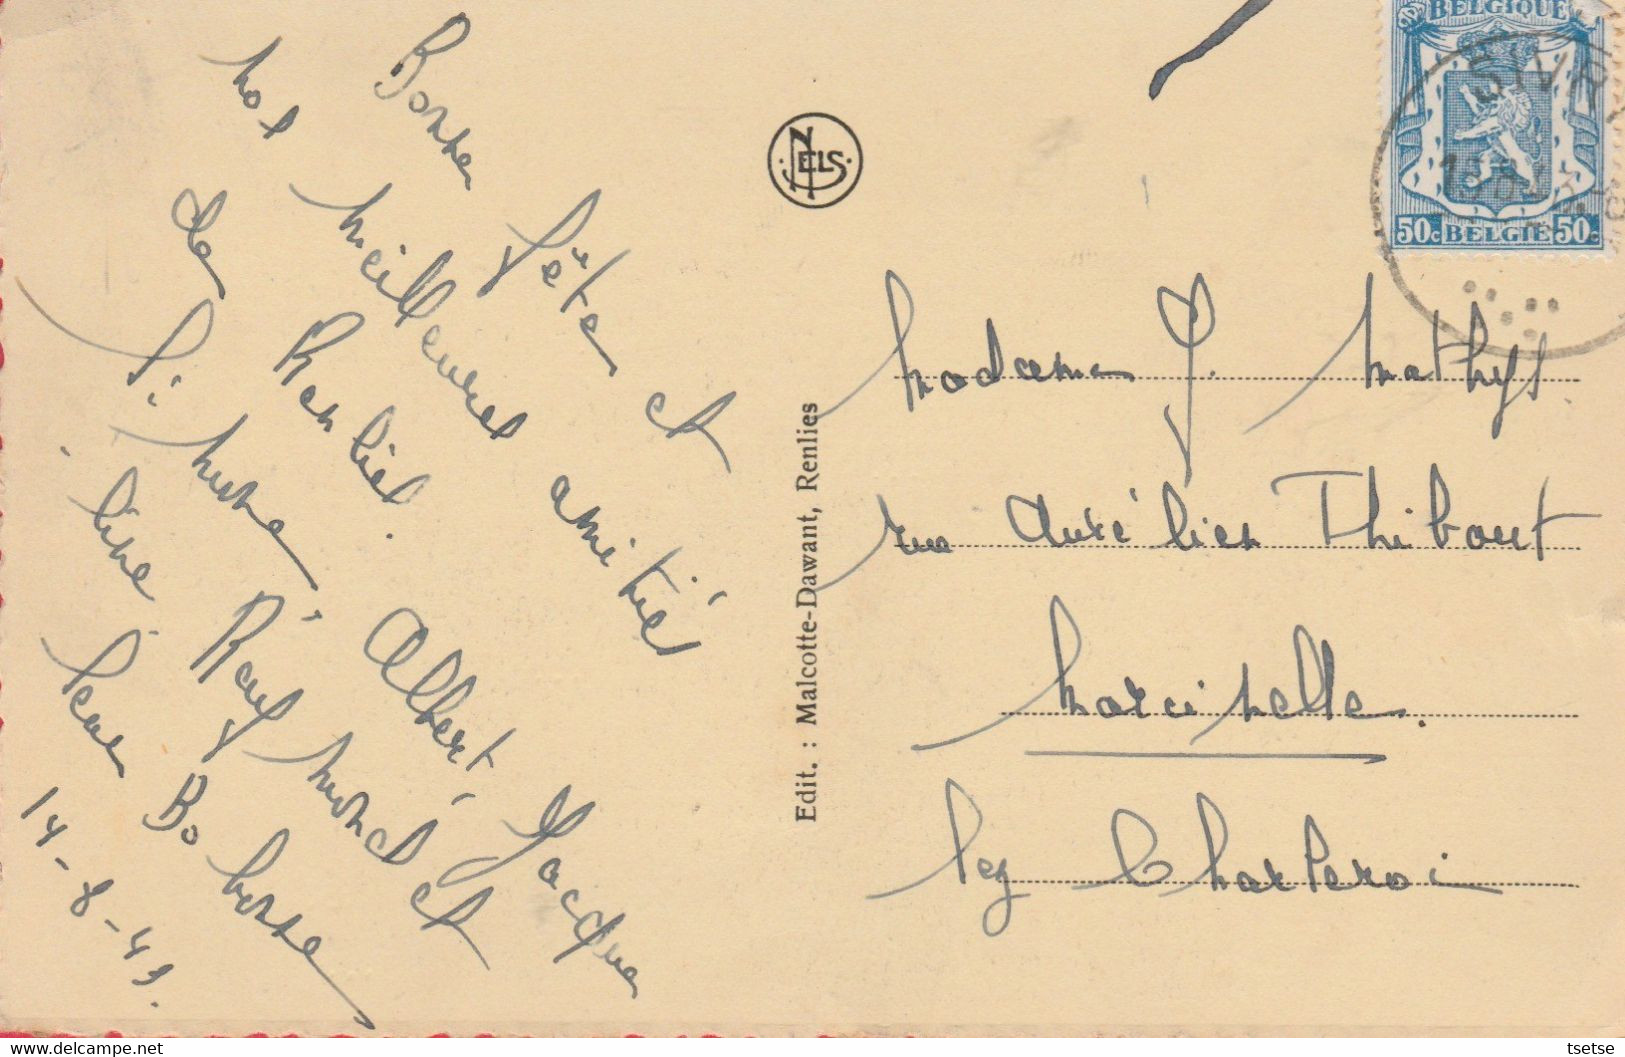 Bonne fête et
nos meilleures amitiés
de Renlies.
Simone, Albert, Jacques
Line, Raymond et
Bonhorse
14-8-49.
NELS
Edit. : Malcotte-Dawant, Renlies
BELGIQUE
50c BELGIE 50c
SIVRY
Madame J. Mathys
rue Aurélien Thibaut
Marcinelle.
lez Charleroi
tsetse
www.delcampe.net